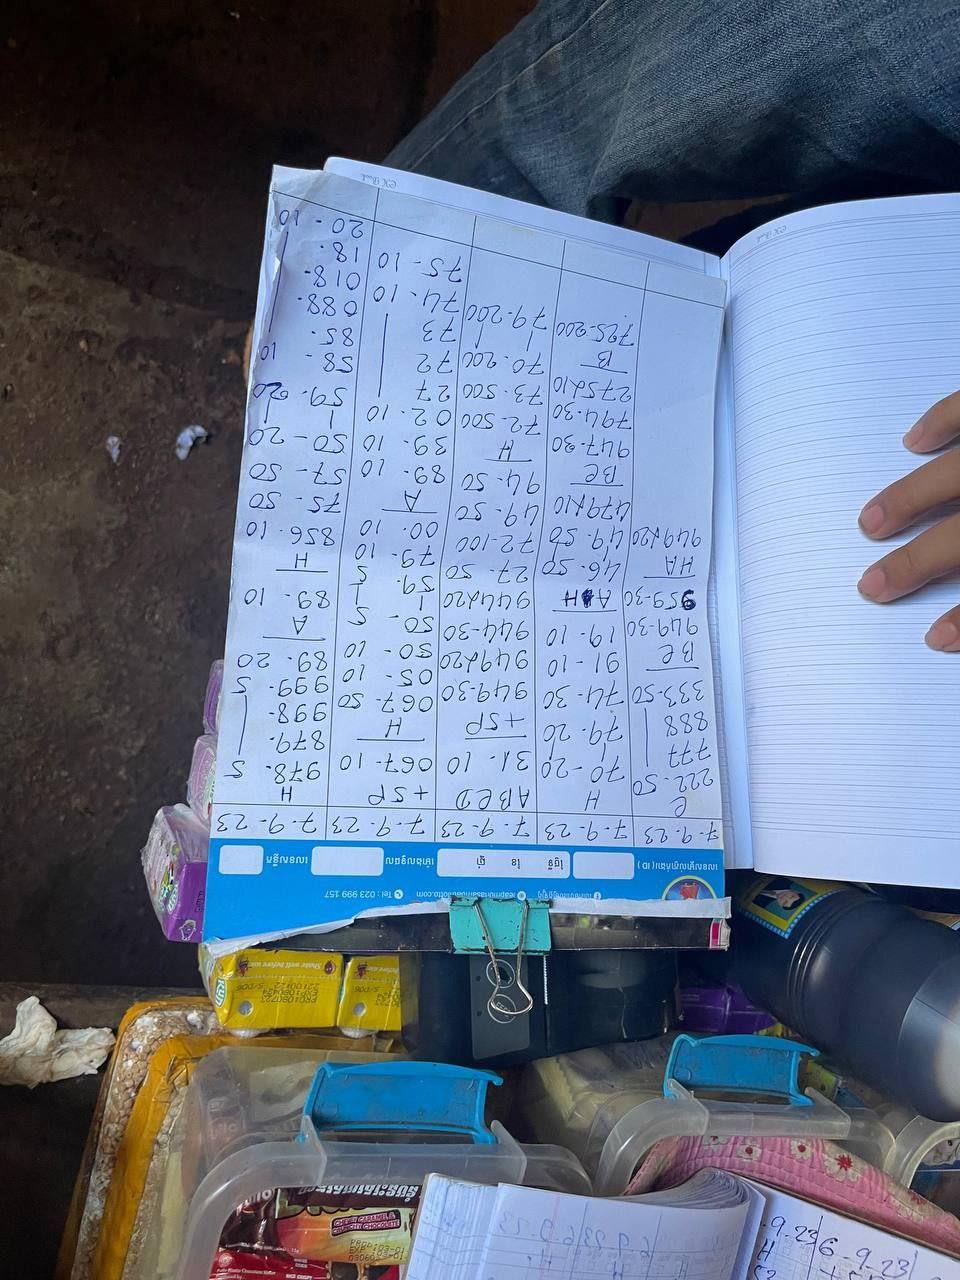 Tel: 023 999 157
7-9-23
C
222-50
777
888
333-50
BC
949-30
959-30
HA
949x20
7-9-23
H
70-20
79-20
74-30
91-10
19-10
AH
46-50
49-50
479x10
BC
947-30
794-30
275x10
B
725-200
7-9-23
ABCD
31-10
+SP
949-30
949x20
944-30
944x20
27-50
72-100
49-50
94-50
H
72-500
73-500
70-200
79-200
7-9-23
+SP
067-10
H
067-50
05-10
50-10
50-5
59-5
79-10
00-10
A
89-10
39-10
02-10
27
72
73
74-10
75-10
7-9-23
H
978-5
879-
998-
999-5
89-20
A
89-10
H
856-10
75-50
57-50
50-20
59-20
58-10
85-
088-
018-
18-
20-10
Shake well before use
CHEWY CARAMEL &
CRUNCHY CHOCOLATE
6-9-23